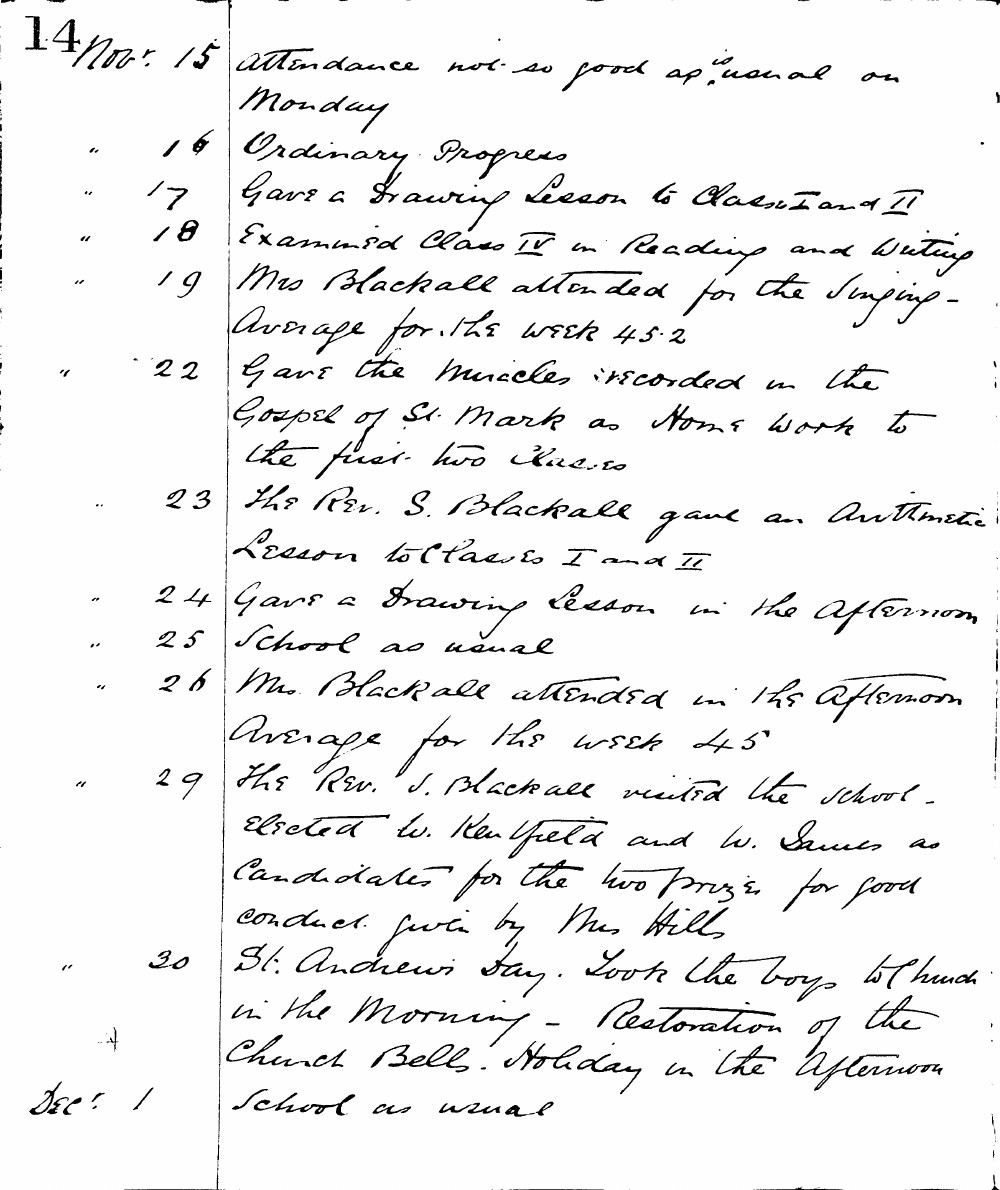 14
Novr. 15 Attendance not so good as is usual on
Monday
" 16 Ordinary Progress
" 17 Gave a Drawing Lesson to Classes I and II
" 18 Examined Class IV in Reading and Writing
" 19 Mrs Blackall attended for the Singing -
Average for the week 45.2
" 22 Gave the Miracles recorded in the
Gospel of St. Mark as Home Work to
the first two Classes
" 23 The Rev. S. Blackall gave an Arithmetic
Lesson to Classes I and II
" 24 Gave a Drawing Lesson in the Afternoon
" 25 School as usual
" 26 Mrs Blackall attended in the Afternoon
Average for the week 45
" 29 The Rev. S. Blackall visited the School -
elected W. Kentfield and W. James as
Candidates for the two prizes for good
conduct given by Mrs Hills
" 30 St. Andrews Day. Took the boys to Church
in the Morning - Restoration of the
Church Bells. Holiday in the Afternoon
Decr. 1 School as usual